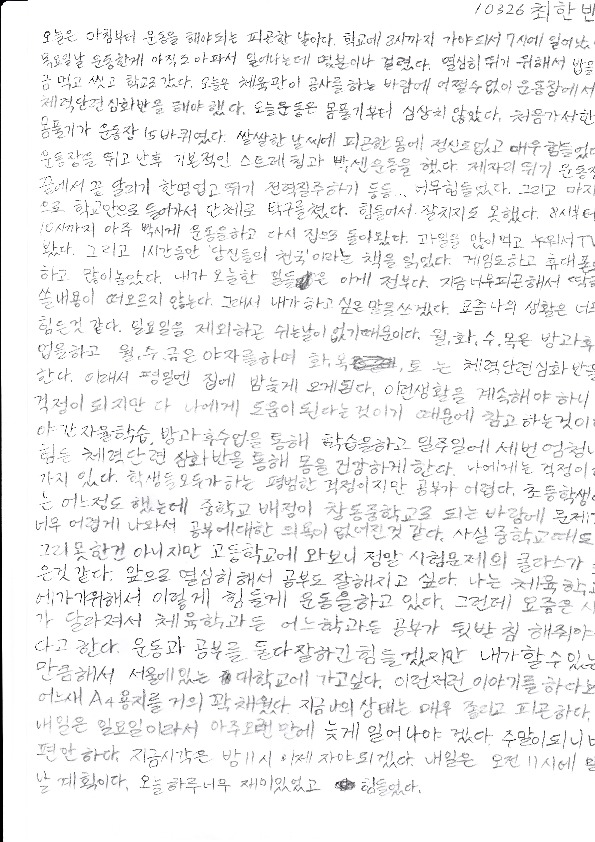 10326 최한빈
오늘은 아침부터 운동을 해야되는 피곤한 날이다. 학교에 8시까지 가야되서 7시에 일어났
목요일날 운동한게 아직도 아파서 일어나는데 몇분이나 걸렸다. 열심히 뛰기 위해서 밥을
금 먹고 씻고 학교로 갔다. 오늘은 체육관이 공사를 하는 바람에 어쩔수없이 운동장에서
체력단련심화반을 해야 했다. 오늘운동은 몸풀기부터 심상치 않았다. 처음가서한
몸풀기가 운동장 15바퀴였다. 쌀쌀한 날씨에 피곤한 몸에 정신도없고 매우힘들었다
운동장을 뛰고 난후 기본적인 스트레칭과 빡센운동을 했다. 제자리 뛰기 운동장
끝에서 끝 달리기 한명업고 뛰기 전력질주하기 등등... 너무힘들었다. 그리고 마지
으로 학교안으로 들어가서 단체로 탁구를쳤다. 힘들어서 잘치지도 못했다. 8시부터
10시까지 아주 빡시게 운동을하고 다시 집으로 돌아왔다. 과일을 많이먹고 누워서TV
봤다. 그리고 1시간동안 '당신들의 천국'이라는 책을 읽었다. 게임도하고 휴대폰
하고 많이놀았다. 내가 오늘한 일들은 이게 전부다. 지금너무피곤해서 딱히
쓸내용이 떠오르지 않는다. 그래서 내가 하고 싶은 말을쓰겠다. 요즘 나의 생활은 너무
힘든것 같다. 일요일을 제외하곤 쉬는날이 없기때문이다. 월,화,수,목은 방과후
업을하고 월,수,금은 야자를하며 화,목,토 는 체력단련심화반을
한다. 이래서 평일엔 집에 밤늦게 오게된다. 이런생활을 계속해야 하니
걱정이 되지만 다 나에게 도움이 된다는것이기 때문에 참고 하는것이
야간자율학습, 방과후수업을 통해 학습을하고 일주일에 세번 엄청나
힘든 체력단련 심화반을 통해 몸을 건강하게 한다. 나에게는 걱정이
가지 있다. 학생들모두가하는 평범한 걱정이지만 공부가 어렵다. 초등학생때
는 어느정도 했는데 중학교 배정이 창동중학교로 되는 바람에 문제가
너무 어렵게 나와서 공부에대한 의욕이 없어진것 같다. 사실 중학교때도
그리못한건 아니지만 고등학교에 와보니 정말 시험문제의 클라스가
은것 같다. 앞으로 열심히 해서 공부도 잘해지고 싶다. 나는 체육학교
에가기위해서 이렇게 힘들게 운동을하고 있다. 그런데 요즘은 시
가 달라져서 체육학과든 어느학과든 공부가 뒷받침 해줘야
다고 한다. 운동과 공부를 둘다잘하긴 힘들겠지만 내가할수있는
만큼해서 서울에있는 대학교에 가고싶다. 이런저런 이야기를 하다보
어느새 A4용지를 거의 꽉채웠다. 지금 나의 상태는 매우 졸리고 피곤하다.
내일은 일요일이라서 아주오랜만에 늦게 일어나야 겠다. 주말이되니
편안하다. 지금시각은 밤11시 이제 자야되겠다. 내일은 오전 11시에 일
날 계획이다. 오늘하루너무 재미있었고 힘들었다.